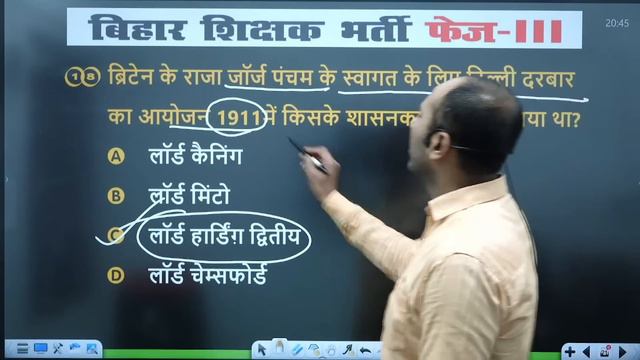 बिहार शिक्षक भर्ती फेज-III
20:45
18 ब्रिटेन के राजा जॉर्ज पंचम के स्वागत के लिए दिल्ली दरबार
का आयोजन 1911 में किसके था?
A लॉर्ड कैनिंग
B लॉर्ड मिंटो
C लॉर्ड हार्डिंग द्वितीय
D लॉर्ड चेम्सफोर्ड